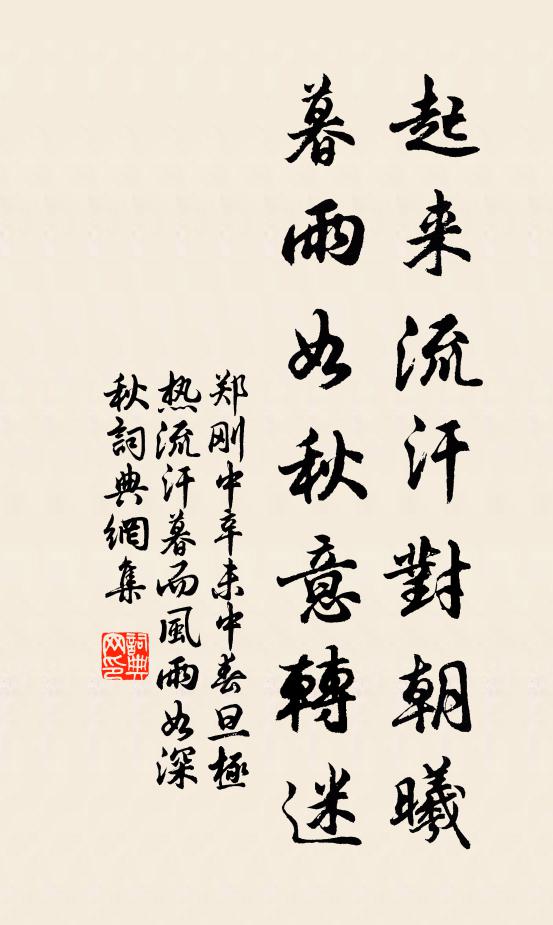 起来流汗對朝曦
暮雨如秋意轉迷
郑刚中辛未中春旦極
热流汗暮而風雨如深
秋詞典網集
詞典网印